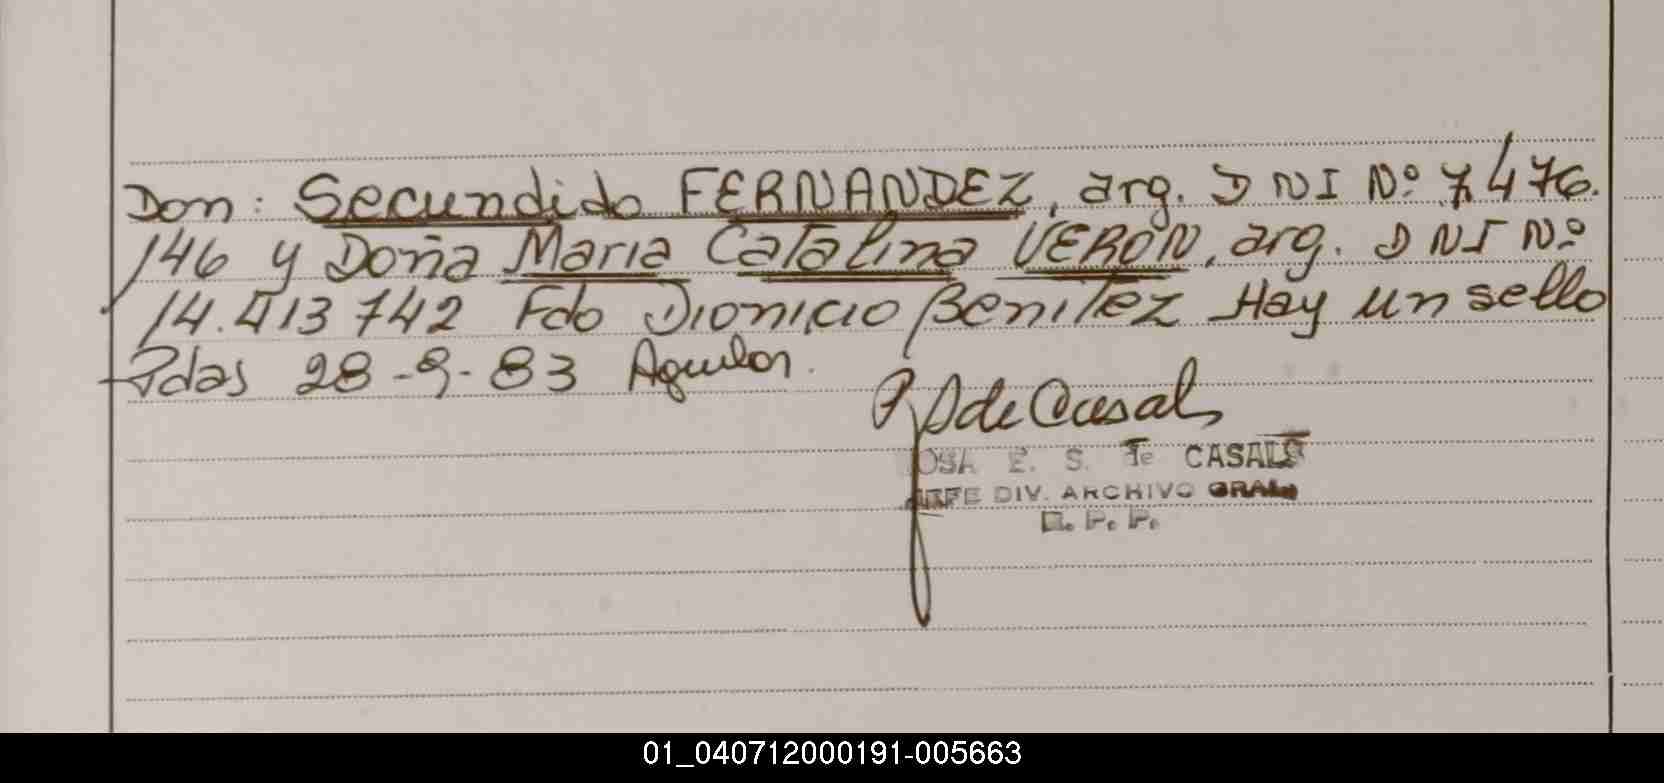 Don: Secundido FERNANDEZ, arg. D N I Nº 7.476.
146 y Doña Maria Catalina VERÓN, arg. D N I Nº
14.413.742 Fdo Dionicio Benitez Hay un sello
Pdas 28-9-83 Aguilar.
de Casals
OSA E. S. de CASALS
JEFE DIV. ARCHIVO GRAL.
R. P. P.
01_040712000191-005663